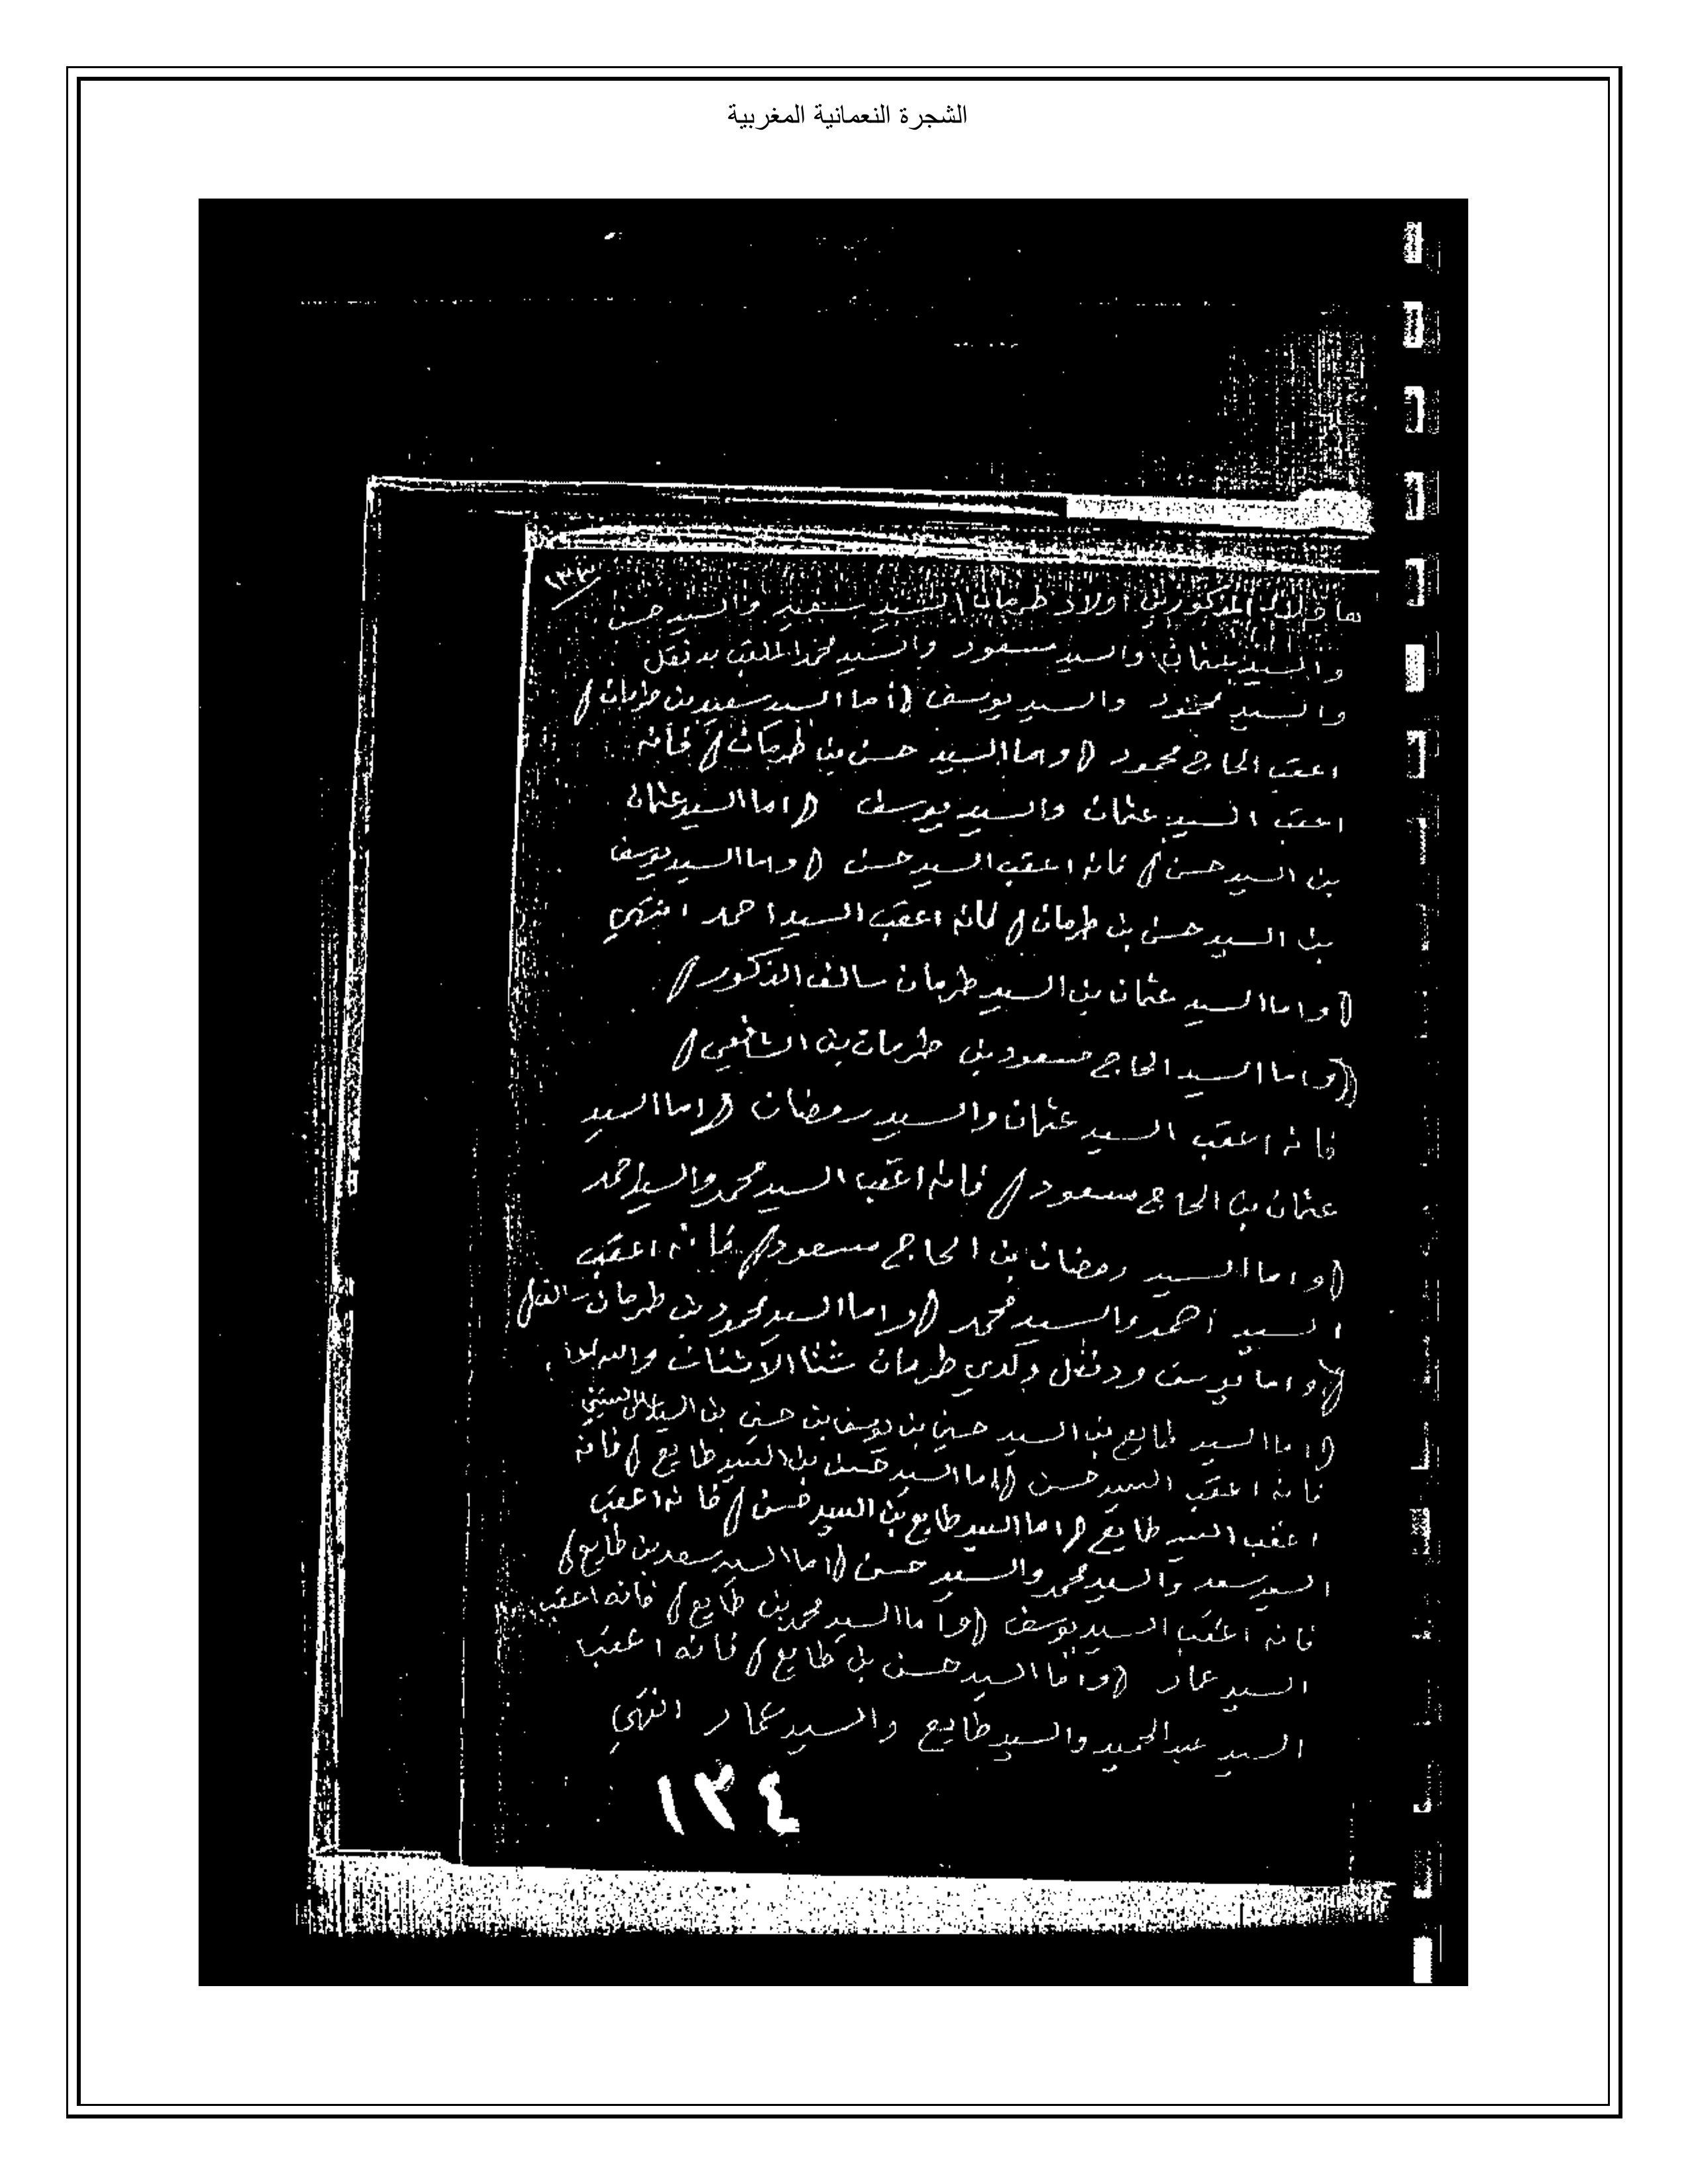 الشجرة النعمانية المغربية
١٣٣
المذكورين اولاد طرمان السيد سعيد والسيد حسن
والسيد عثمان والسيد مسعود والسيد محمد الملقب بدنقل
والسيد محمود والسيد يوسف (اما السيد سعيد بن طرمان)
اعقب الحاج محمود (واما السيد حسن بن طرمان) فانه
اعقب السيد عثمان والسيد يوسف (اما السيد عثمان
بن السيد حسن) فانه اعقب السيد حسن (واما السيد يوسف
بن السيد حسن بن طرمان) فانه اعقب السيد احمد انتهى
(واما السيد عثمان بن السيد طرمان سالف الذكور)
((واما السيد الحاج مسعود بن طرمان بن الشافعي)
فانه اعقب السيد عثمان والسيد رمضان (اما السيد
عثمان بن الحاج مسعود) فانه اعقب السيد محمد والسيد احمد
(واما السيد رمضان بن الحاج مسعود) فانه اعقب
السيد احمد والسيد محمد (واما السيد محمود بن طرمان
واما يوسف ودنقل ولدي طرمان
(اما السيد طايع بن السيد حسن بن يوسف بن حسن بن السيد
فانه اعقب السيد حسن (اما السيد حسن بن السيد طايع) فانه
اعقب السيد طايع (اما السيد طايع بن السيد حسن) فانه اعقب
السيد سعد والسيد محمد والسيد حسن (اما السيد سعد بن طايع)
فانه اعقب السيد يوسف (واما السيد محمد بن طايع) فانه اعقب
السيد عمار (واما السيد حسن بن طايع) فانه اعقب
السيد عبد الحميد والسيد طايع والسيد عمار انتهى
١٣٤